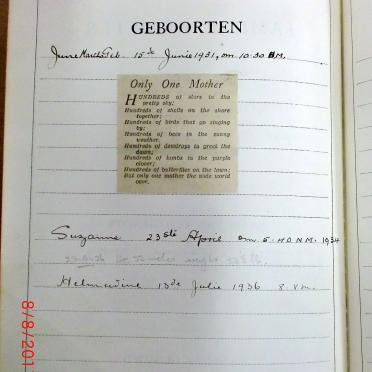 GEBOORTEN
15de Junie 1931, om 10.30 N.M.
Only One Mother
HUNDREDS of stars in the
pretty sky;
Hundreds of shells on the shore
together;
Hundreds of birds that go singing
by;
Hundreds of bees in the sunny
weather.
Hundreds of dewdrops to greet the
dawn;
Hundreds of lambs in the purple
clover;
Hundreds of butterflies on the lawn;
But only one mother the wide world
over.
Suzanne 23ste April om 5.40 N.M. 1934
13de Julie 1936 8 v.m.
8/8/201